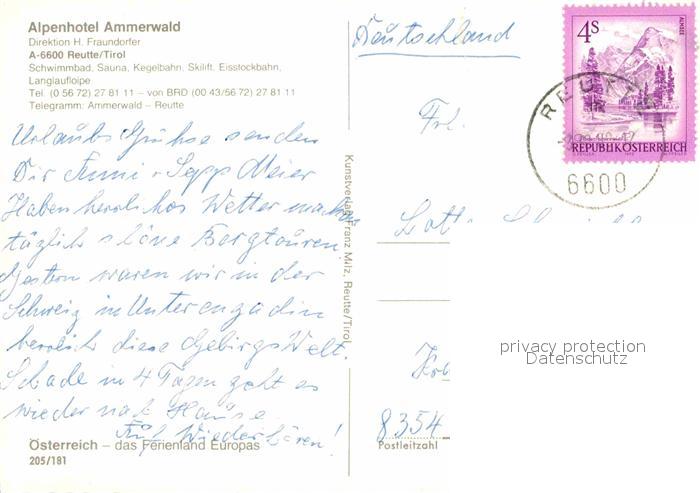 Alpenhotel Ammerwald
Direktion H. Fraundorfer
A-6600 Reutte/Tirol
Schwimmbad, Sauna, Kegelbahn, Skilift, Eisstockbahn,
Langlaufloipe
Tel. (0 56 72) 27 81 11 – von BRD (00 43/56 72) 27 81 11
Telegramm: Ammerwald – Reutte
Urlaubs Grüße senden
Dir Fanni + Sepp Meier
Haben herrliches Wetter machen
täglich schöne Bergtouren.
Gestern waren wir in der
Schweiz in Unterengadin
herrlich diese Gebirgs Welt.
Schade in 4 Tagen geht es
wieder nach Hause
Auf Wiederhören!
Österreich – das Ferienland Europas
205/181
Kunstverlag Franz Milz, Reutte/Tirol
Deutschland
4S
ALMSEE
REPUBLIK ÖSTERREICH
REUTTE
6600
Frl.
8354
Postleitzahl
privacy protection
Datenschutz